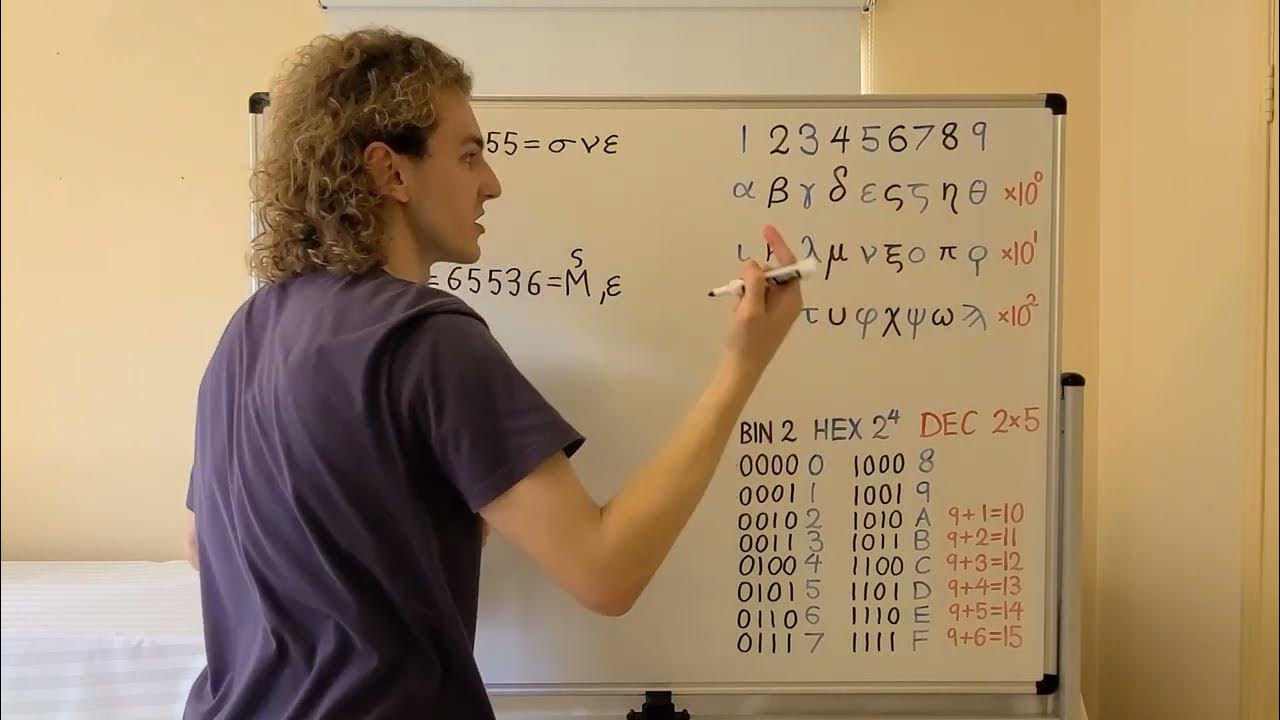 55=σνε
1 2 3 4 5 6 7 8 9
α β γ δ ε ς ζ η θ ×10⁰
ι λ μ ν ξ ο π ϙ ×10¹
=65536=M͑,ε
τ υ φ χ ψ ω ϡ ×10²
BIN 2 HEX 2⁴ DEC 2×5
0000 0 1000 8
0001 1 1001 9
0010 2 1010 A 9+1=10
0011 3 1011 B 9+2=11
0100 4 1100 C 9+3=12
0101 5 1101 D 9+4=13
0110 6 1110 E 9+5=14
0111 7 1111 F 9+6=15